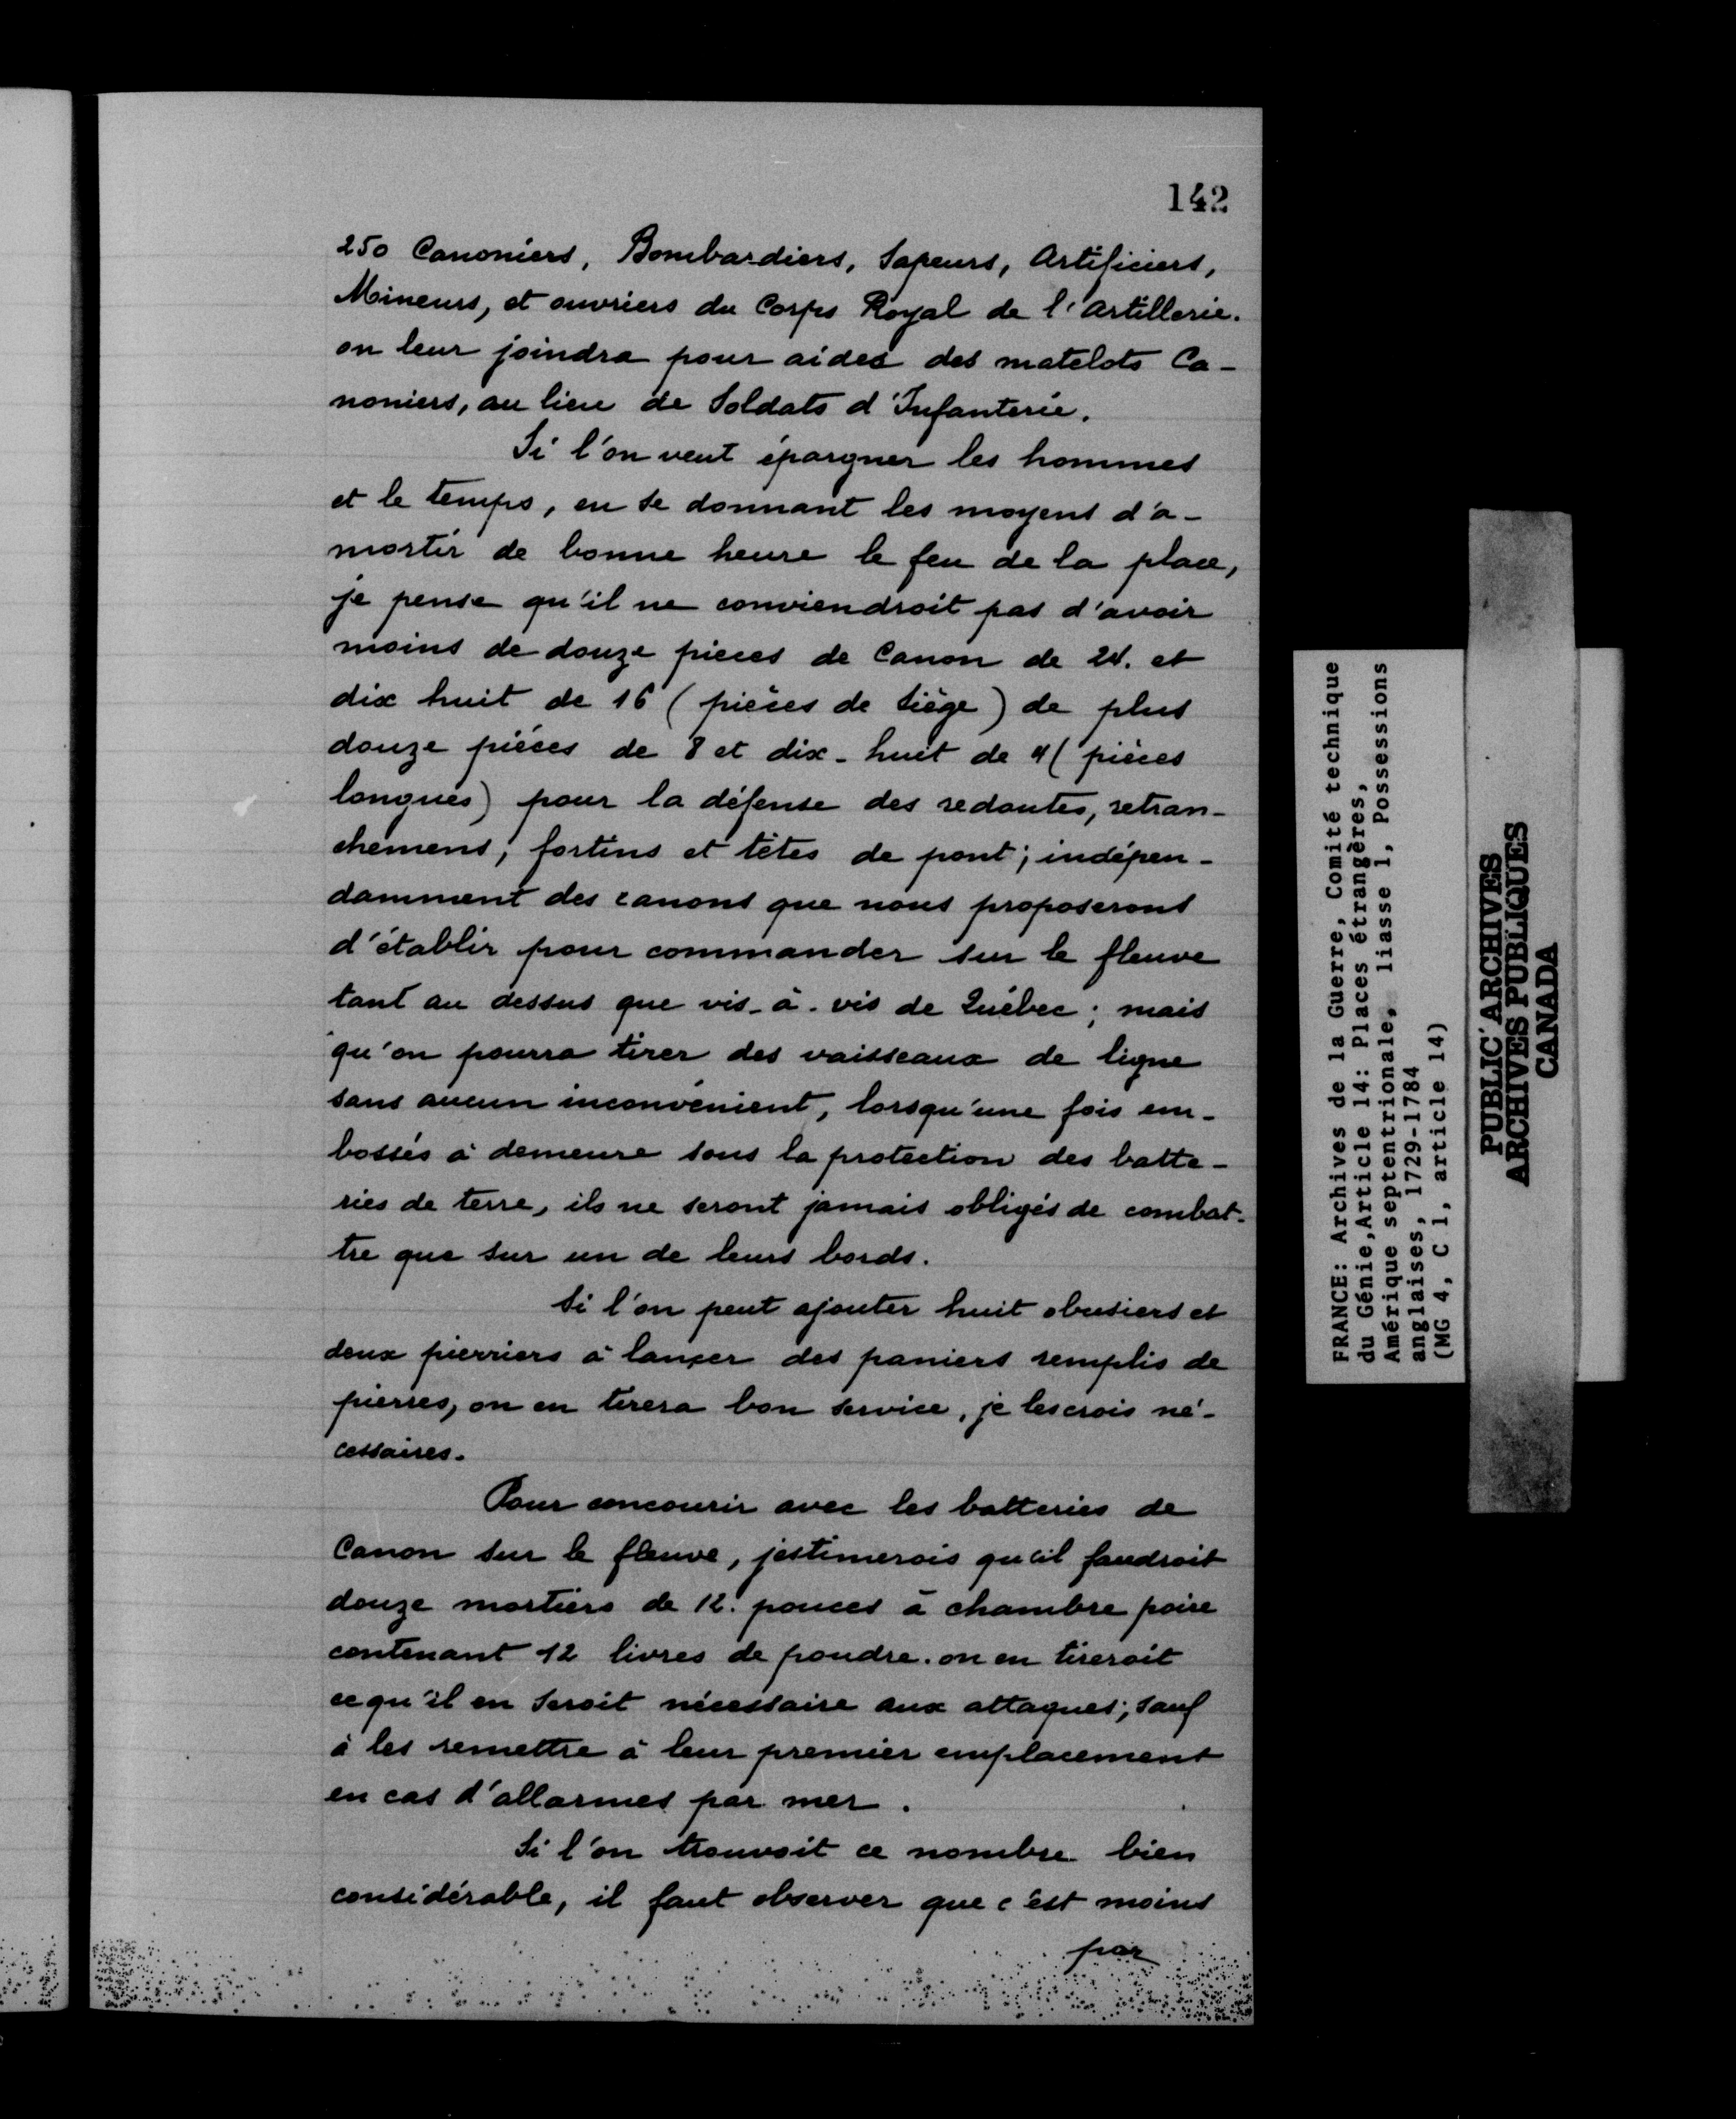 142
250 Canoniers, Bombardiers, Sapeurs, Artificiers,
Mineurs, et ouvriers du Corps Royal de l'artillerie.
on leur joindra pour aides des matelots Ca-
noniers, au lieu de Soldats d'Infanterie.
Si l'on veut épargner les hommes
et le temps, en se donnant les moyens d'a-
mortir de bonne heure le feu de la place,
je pense qu'il ne conviendroit pas d'avoir
moins de douze pieces de Canon de 24. et
dix huit de 16 (pièces de siège) de plus
douze pièces de 8 et dix-huit de 4 (pièces
longues) pour la défense des redoutes, retran-
chemens, fortins et têtes de pont; indépen-
damment des canons que nous proposerons
d'établir pour commander sur le fleuve
tant au dessus que vis-à-vis de Québec; mais
qu'on pourra tirer des vaisseaux de ligne
sans aucun inconvénient, lorsqu'une fois em-
bossés à demeure sous la protection des batte-
ries de terre, ils ne seront jamais obligés de combat-
tre que sur un de leurs bords.
Si l'on peut ajouter huit obusiers et
deux pierriers à lançer des paniers remplis de
pierres, on en tirera bon service, je les crois né-
cessaires.
Pour concourir avec les batteries de
Canon sur le fleuve, j'estimerois qu'il faudroit
douze mortiers de 12. pouces à chambre poire
contenant 12 livres de poudre. on en tireroit
ce qu'il en seroit nécessaire aux attaques; sauf
à les remettre à leur premier emplacement
en cas d'allarmes par mer.
Si l'on trouvoit ce nombre bien
considérable, il faut observer que c'est moins
par
FRANCE: Archives de la Guerre, Comité technique
du Génie,Article 14: Places étrangères,
Amérique septentrionale, liasse 1, Possessions
anglaises, 1729-1784
(MG 4, C 1, article 14)
PUBLIC ARCHIVES
ARCHIVES PUBLIQUES
CANADA